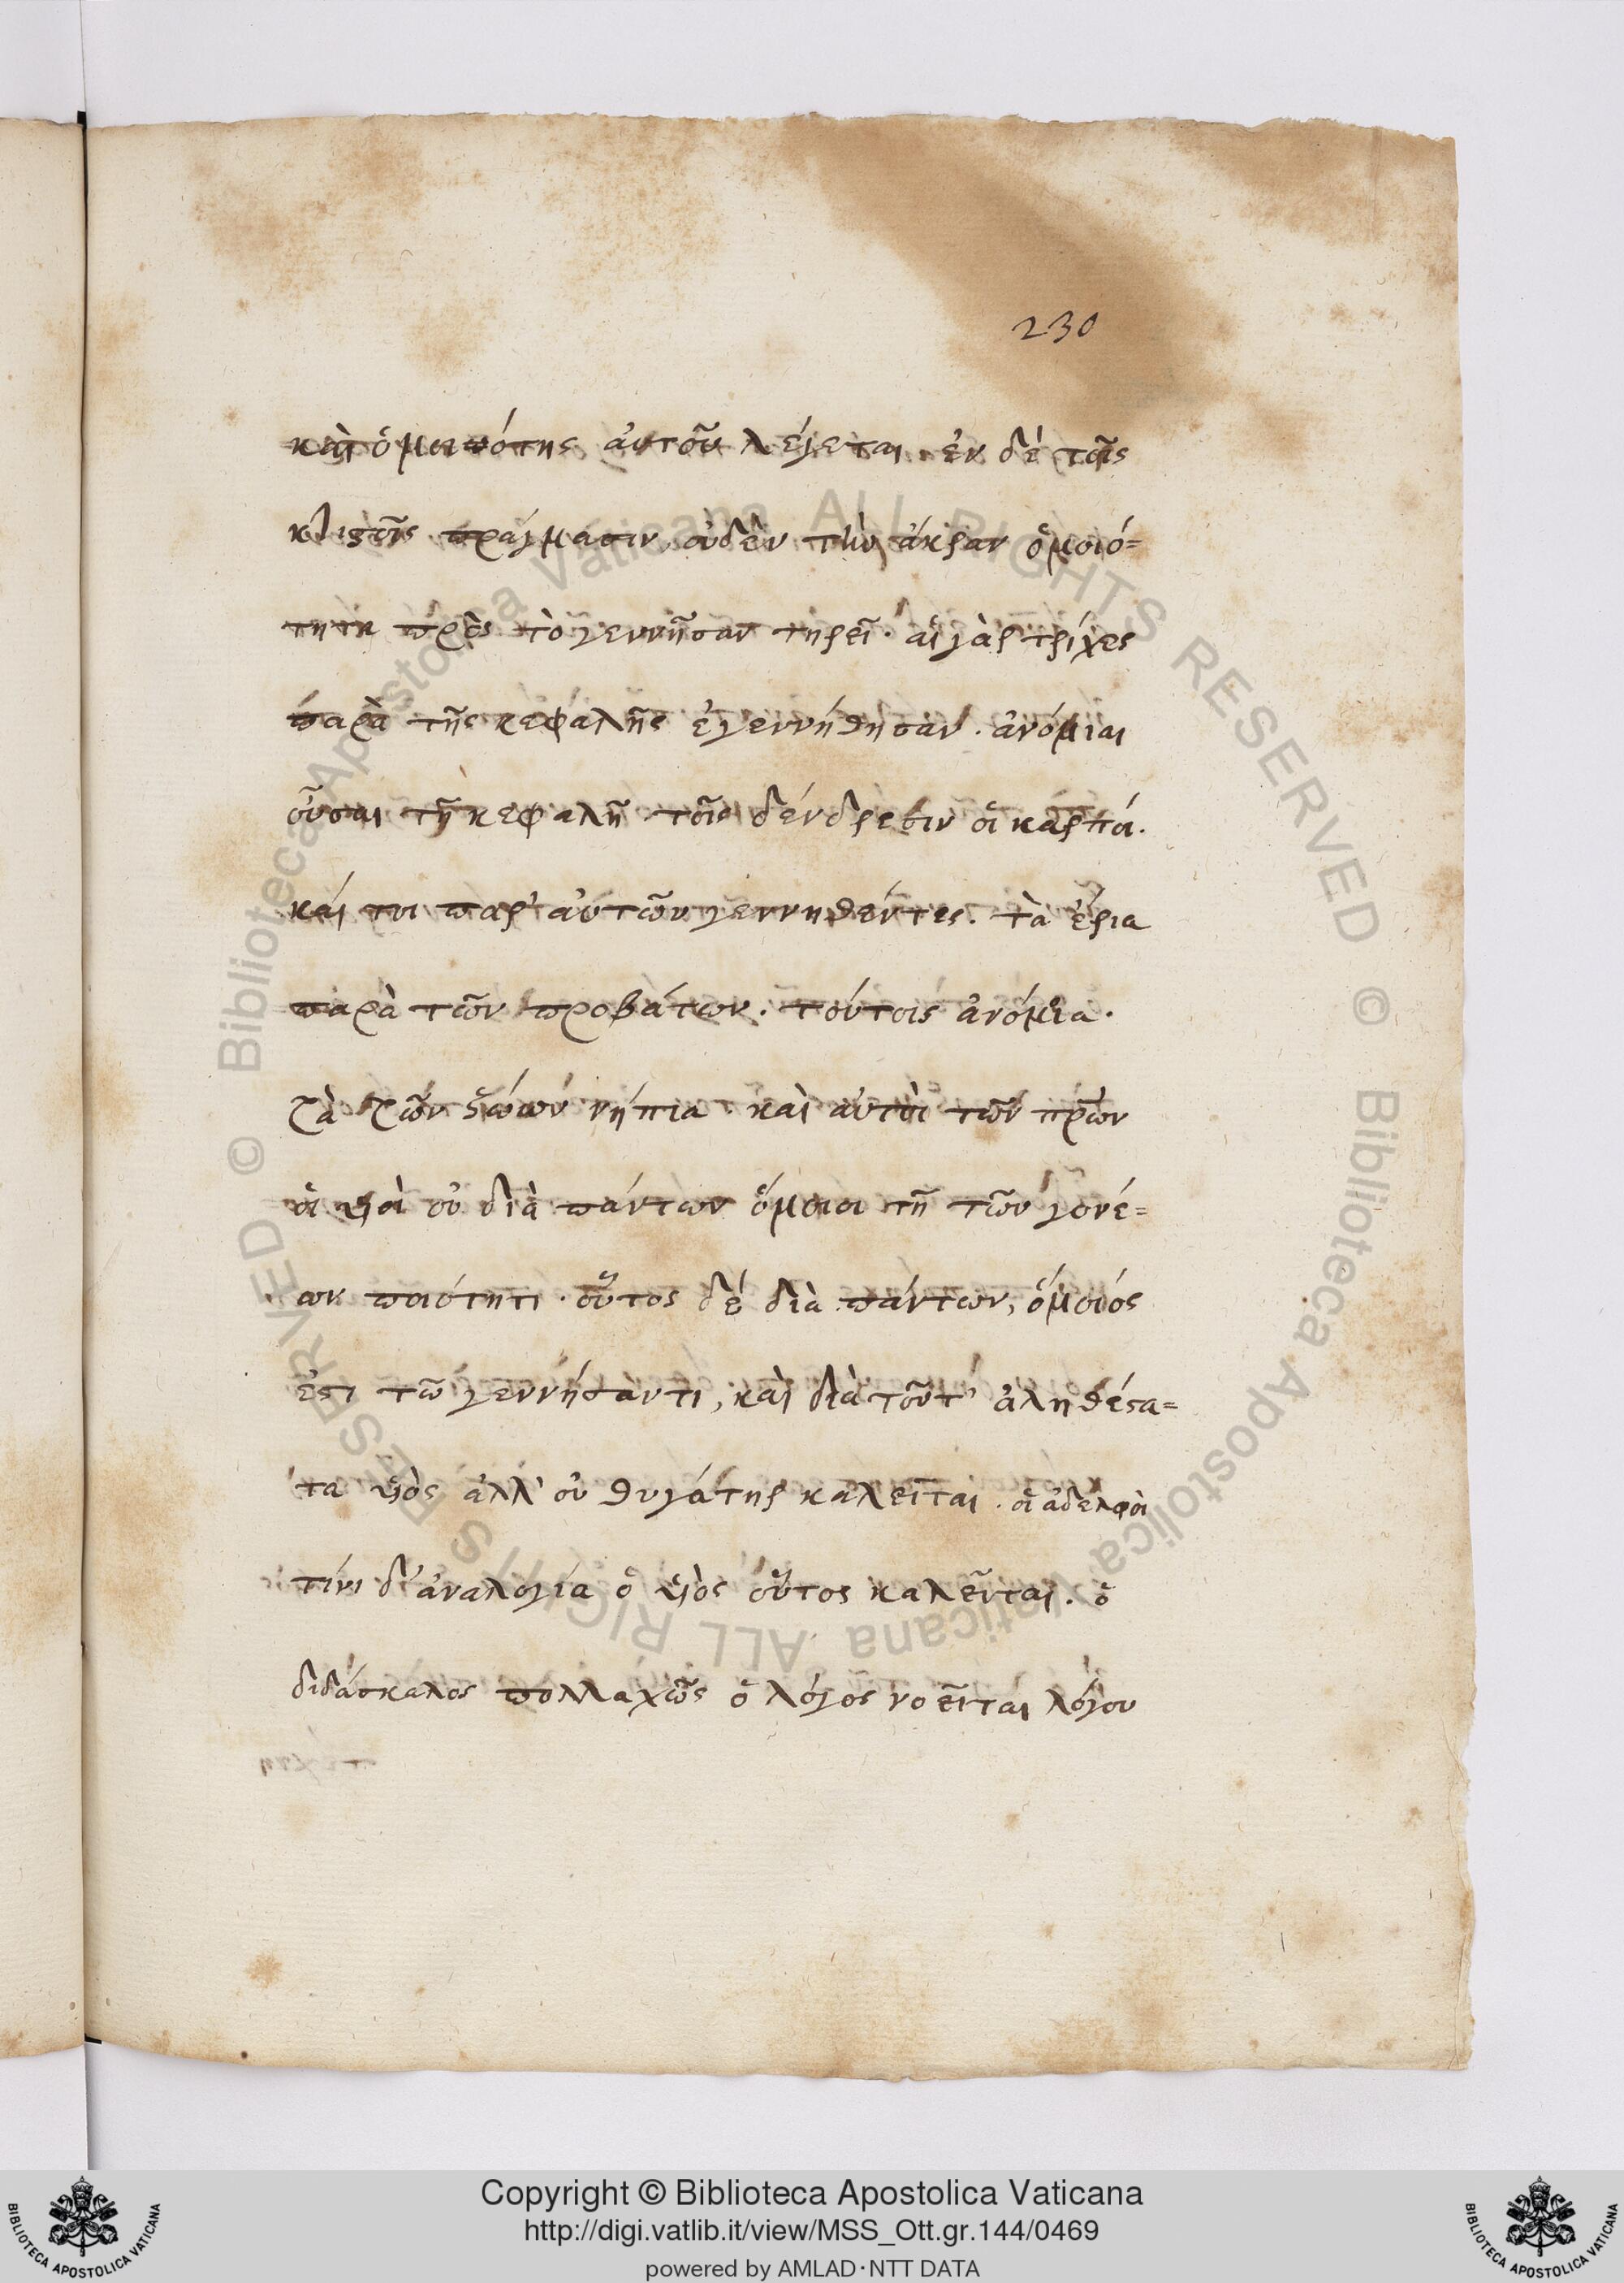 230
καὶ ὁμοιότης αὐτοῦ λέγεται. ἐν δὲ τοῖς
κτιστοῖς πράγμασιν, οὐδὲν τὴν ἄκραν ὁμοιό=
τητα πρὸς τὸ γεννῆσαν τηρεῖ· αἱ γὰρ τρίχες
παρὰ τῆς κεφαλῆς ἐγεννήθησαν. ἀνόμοιαι
οὖσαι τῇ κεφαλῇ. τοῖς δένδρεσιν οἱ καρποί.
καί τοι παρ' αὐτῶν γεννηθέντες. τὰ ἔρια
παρὰ τῶν προβάτων. τούτοις ἀνόμοια.
τὰ τῶν ζώων νήπια. καὶ αὐτοὶ τῶν πρων
οἱ υἱοὶ οὐ διὰ πάντων ὅμοιοι τῇ τῶν γονέ=
ων ποιότητι. οὗτος δὲ διὰ πάντων, ὅμοιός
ἐστι τῷ γεννήσαντι, καὶ διὰ τοῦτ' ἀληθέστα=
τα υἱὸς ἀλλ' οὐ θυγάτηρ καλεῖται. οἱ ἀδελφοὶ
τίνι δ' ἀναλογία ὁ υἱὸς οὗτος καλεῖται. ὁ
διδάσκαλος πολλαχῶς ὁ λόγος νοεῖται λόγου
© Biblioteca Apostolica Vaticana ALL RIGHTS RESERVED © Biblioteca Apostolica Vaticana ALL RIGHTS RESERVED
Copyright © Biblioteca Apostolica Vaticana
http://digi.vatlib.it/view/MSS_Ott.gr.144/0469
powered by AMLAD·NTT DATA
BIBLIOTECA APOSTOLICA VATICANA
BIBLIOTECA APOSTOLICA VATICANA